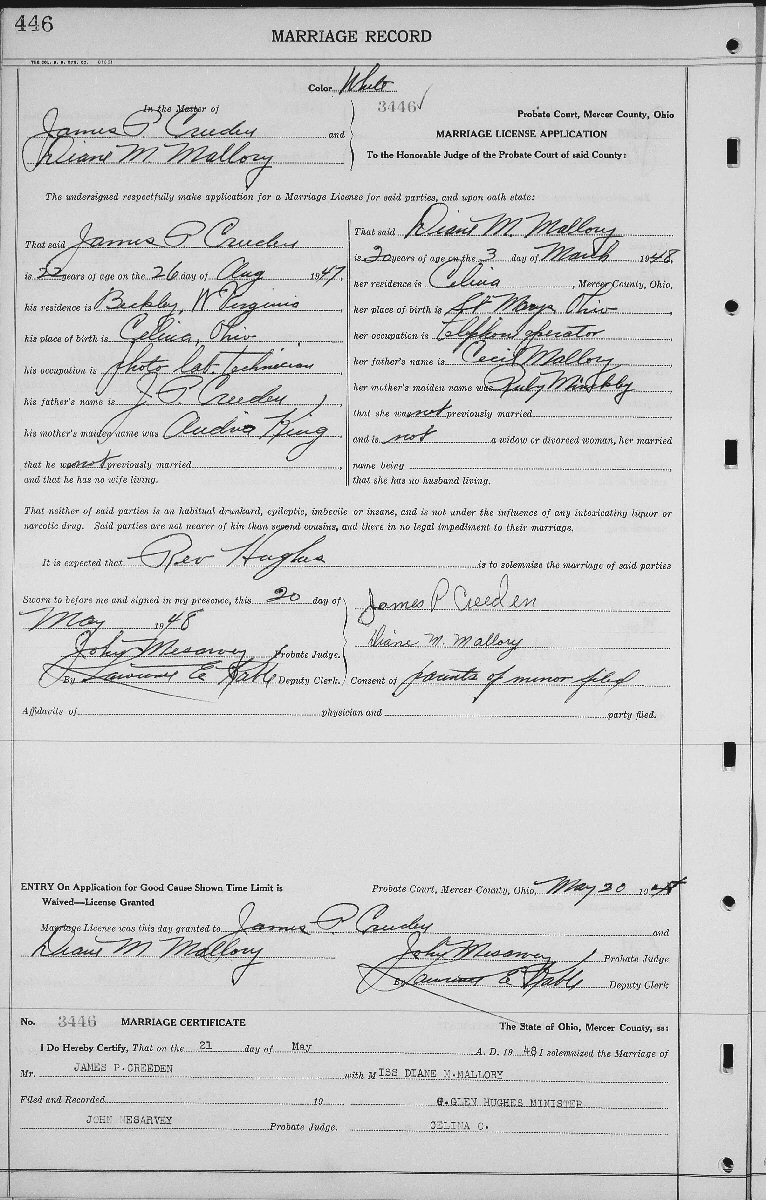 446
MARRIAGE RECORD
Color White
In the Matter of
3446 ✓
James P. Creeden and
Diane M Mallory
Probate Court, Mercer County, Ohio
MARRIAGE LICENSE APPLICATION
To the Honorable Judge of the Probate Court of said County:
The undersigned respectfully make application for a Marriage License for said parties, and upon oath state:
That said James P Creeden
is 22 years of age on the 26 day of Aug 1947,
his residence is Beckley, W Virginia
his place of birth is Celina, Ohio
his occupation is photo lab technician
his father's name is J P Creeden
his mother's maiden name was King
that he was not previously married
and that he has no wife living.
That said Diane M. Mallory
is 20 years of age on the 3 day of March 1948,
her residence is Celina, Mercer County, Ohio,
her place of birth is St Marys Ohio
her occupation is telephone operator
her father's name is Cecil Mallory
her mother's maiden name was Ruby
that she was not previously married
and is not a widow or divorced woman, her married
name being
that she has no husband living.
That neither of said parties is an habitual drunkard, epileptic, imbecile or insane, and is not under the influence of any intoxicating liquor or
narcotic drug. Said parties are not nearer of kin than second cousins, and there in no legal impediment to their marriage.
It is expected that Rev Hughes is to solemnize the marriage of said parties
Sworn to before me and signed in my presence, this 20 day of
May 1948
John Mesarvey Probate Judge.
By E Deputy Clerk.
James P Creeden
Diane M. Mallory
Consent of parents of minor filed
Affidavits of physician and party filed.
ENTRY On Application for Good Cause Shown Time Limit is
Waived—License Granted
Probate Court, Mercer County, Ohio, May 20 1948
Marriage License was this day granted to James P. Creeden and
Diane M Mallory
John Mesarvey Probate Judge
By E Deputy Clerk
No. 3446 MARRIAGE CERTIFICATE
The State of Ohio, Mercer County, ss:
I Do Hereby Certify, That on the 21 day of May A. D. 19 48 I solemnized the Marriage of
Mr. JAMES P. CREEDEN with MISS DIANE M. MALLORY
Filed and Recorded 19 G. GLEN HUGHES MINISTER
JOHN MESARVEY Probate Judge. CELINA O.